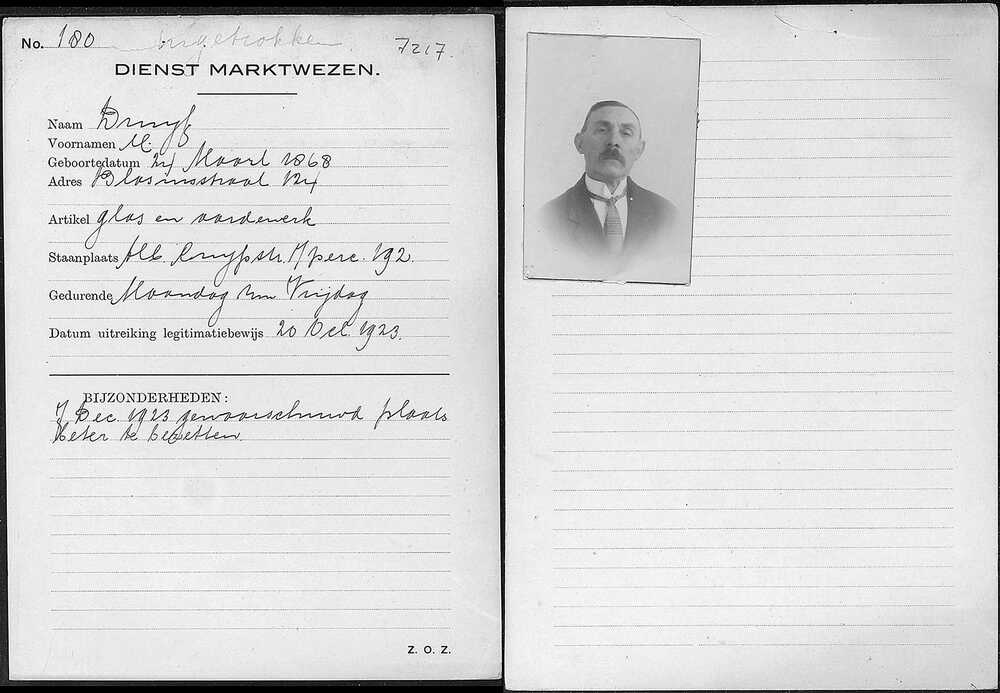 No. 180 ingetrokken 7217.
DIENST MARKTWEZEN.
Naam Druyf
Voornamen M.
Geboortedatum 24 Maart 1868
Adres Blasiusstraat 124
Artikel glas en aardewerk
Staanplaats Alb. Cuypstr. t/perc. 192.
Gedurende Maandag t/m Vrijdag
Datum uitreiking legitimatiebewijs 20 Oct. 1923.
BIJZONDERHEDEN:
7 Dec. 1923 gewaarschuwd plaats
beter te bezetten.
Z. O. Z.